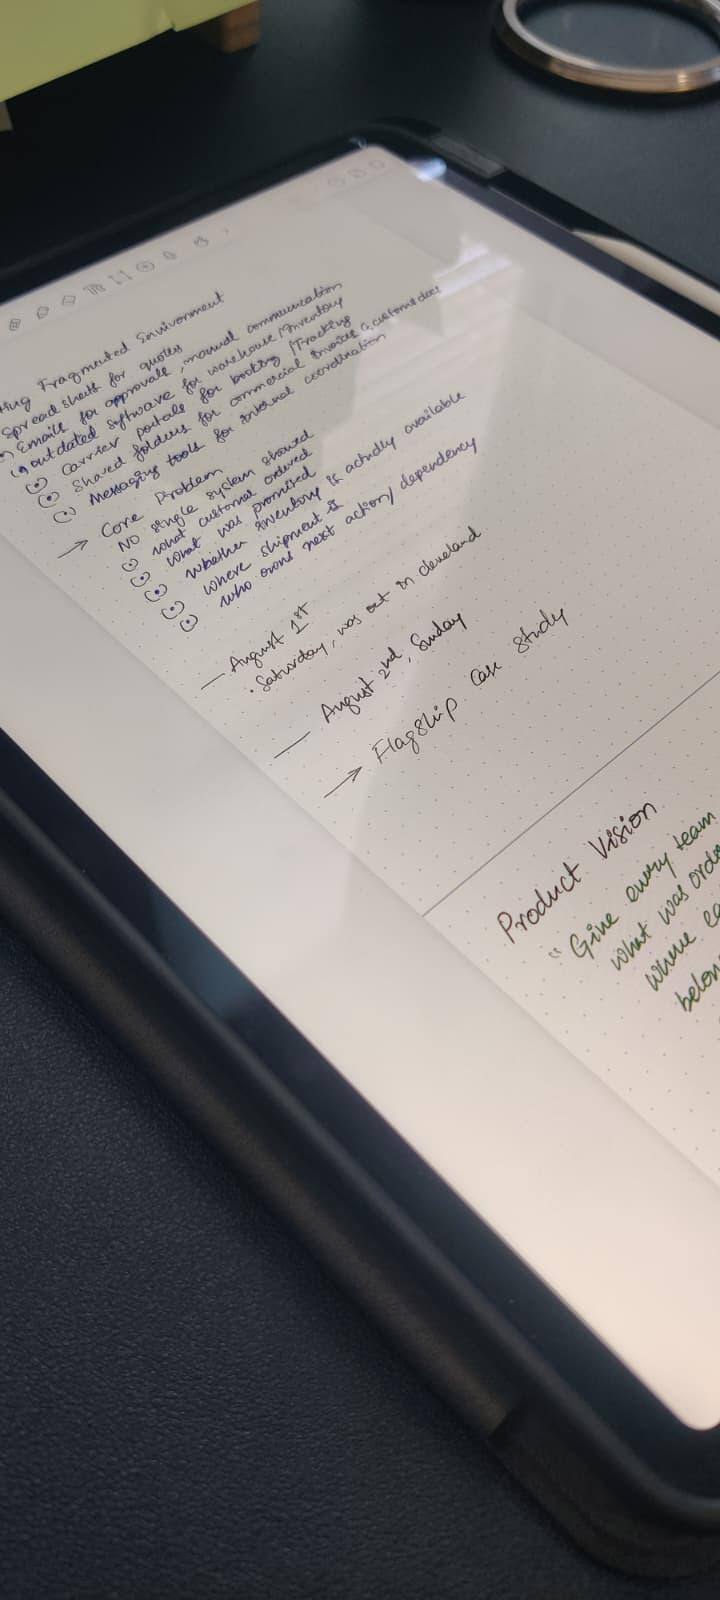 Fragmented Environment
Spreadsheets for quotes
Emails for approvals, manual communication
outdated software for warehouse/Inventory
Carrier portals for booking/Tracking
Shared folders for commercial invoices & customs docs
Messaging tools for internal coordination
→ Core Problem
No single system showed
what customer ordered
what was promised
whether inventory is actually available
where shipment is
who owns next action/dependency
— August 1st
• Saturday, was out in cleveland
— August 2nd, Sunday
→ Flagship case study
Product Vision
"Give every team
what was
where